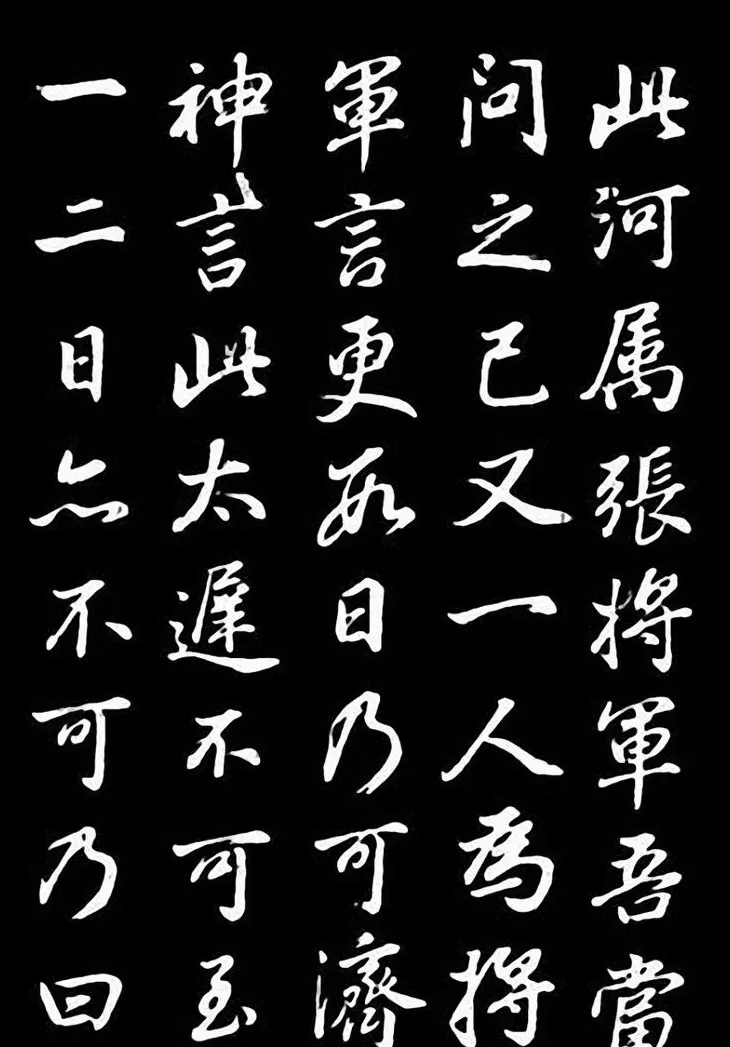 此河属張將軍吾當
问之已又一人為將
軍言更数日乃可濟
神言此太遲不可至
一二日亦不可乃曰